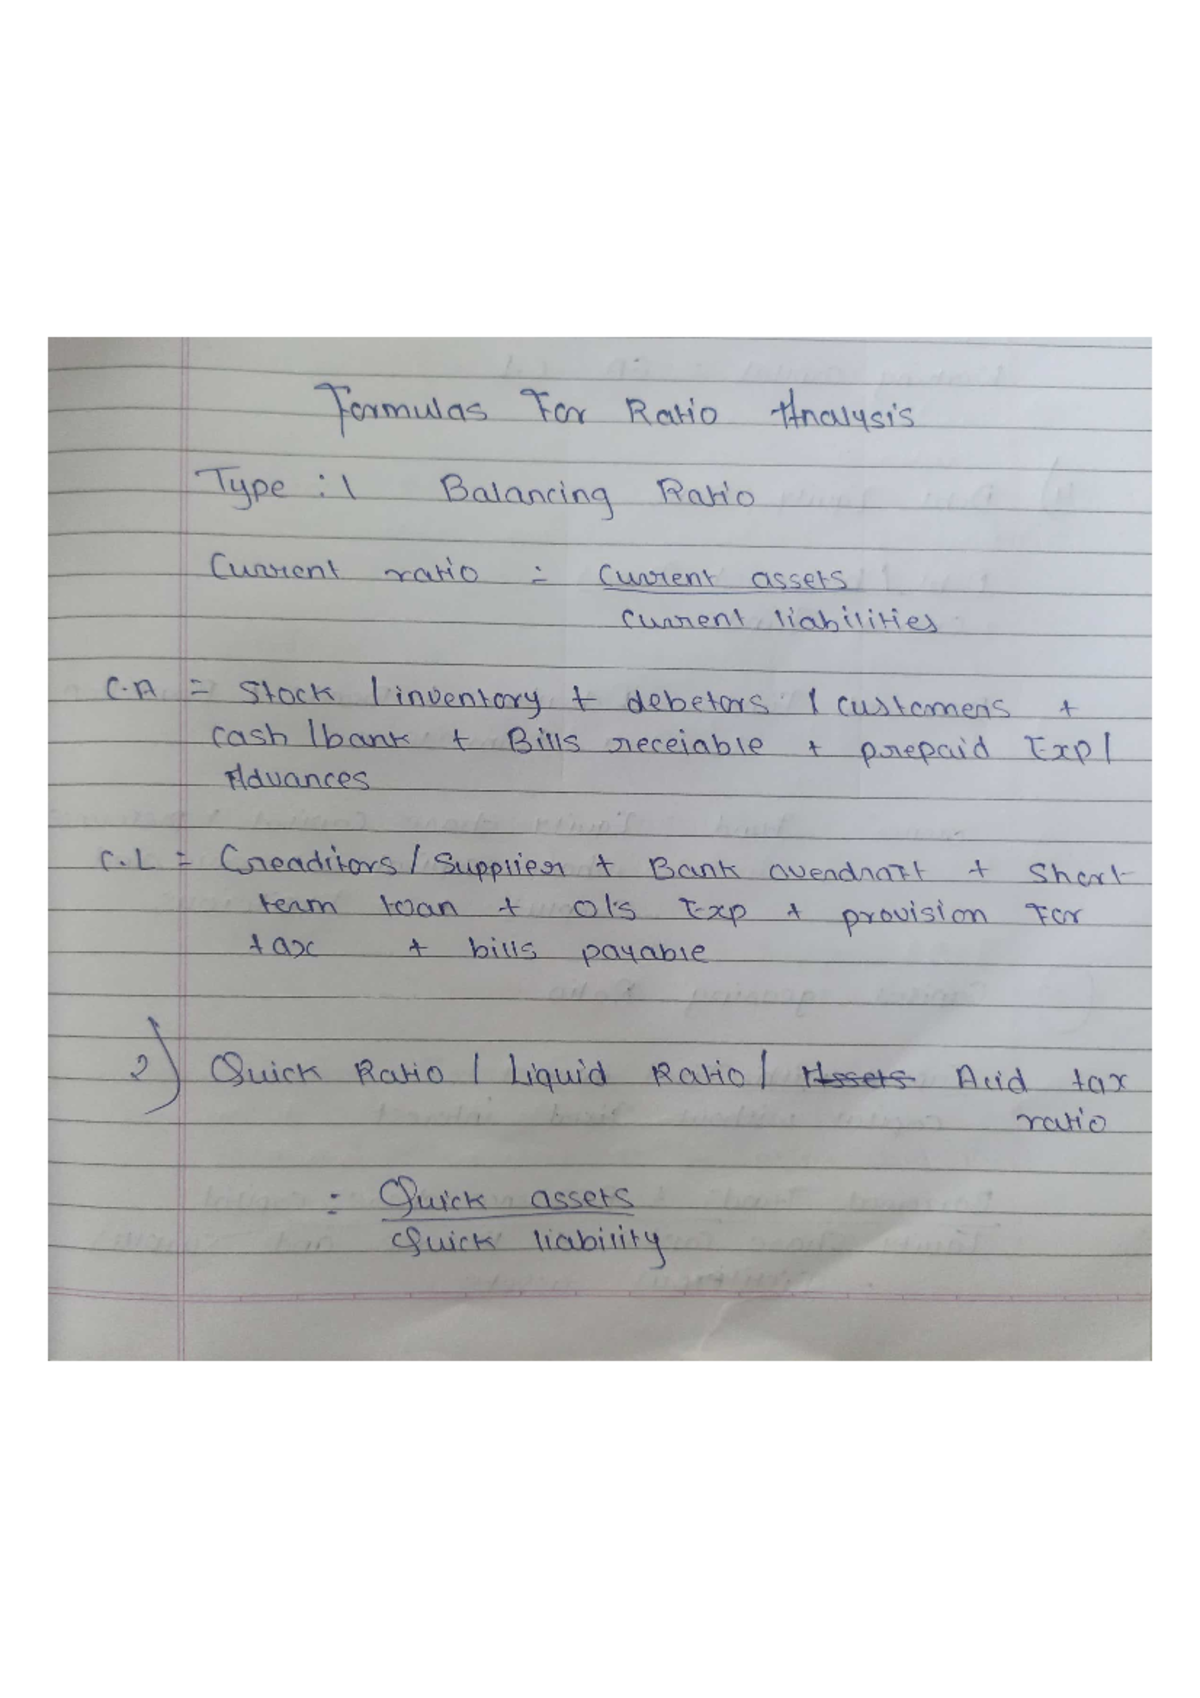 Formulas For Ratio Analysis
Type : 1 Balancing Ratio
Current ratio = Current assets
Current liabilities
C.A = Stock / inventory + debetors / customers +
cash / bank + Bills receiable + prepaid Exp /
Advances
C.L = Creaditors / Supplier + Bank overdraft + Short
team loan + o/s Exp + provision For
tax + bills payable
2) Quick Ratio / Liquid Ratio / Assets Acid tax
ratio
= Quick assets
Quick liability